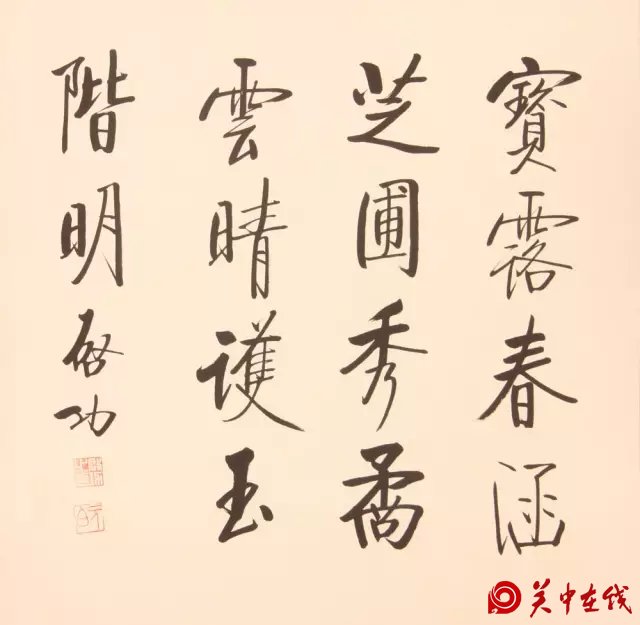 寶露春涵
芝圃秀矞
雲晴護玉
階明
啓功
关中在线